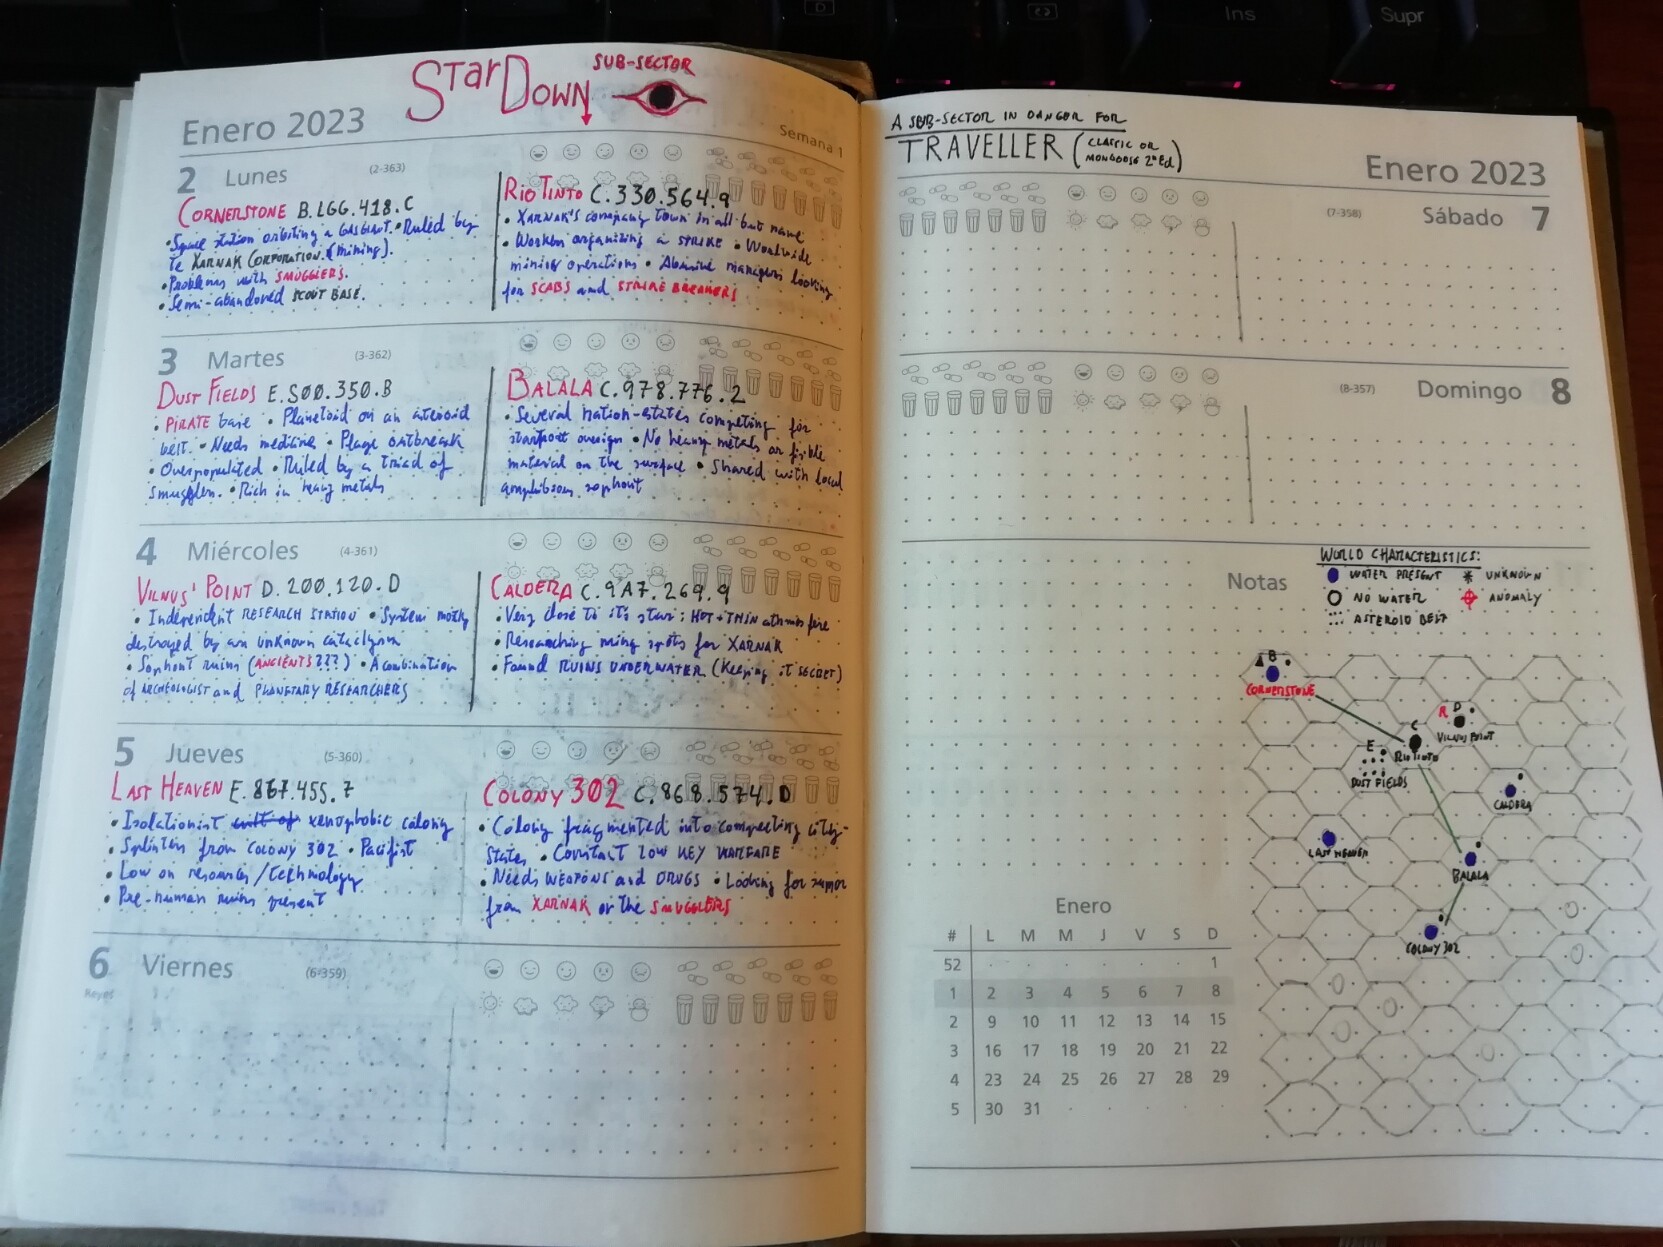 Ins
Supr
StarDown
SUB-SECTOR
Enero 2023
Semana 1
2 Lunes (2-363)
CORNERSTONE B.LGG.418.C
• Space station orbiting a GAS GIANT. • Ruled by
te XARNAK CORPORATION. (mining).
• Problems with SMUGGLERS.
• Semi-abandoned SCOUT BASE.
RIO TINTO C.330.564.9
• XARNAK's company town in all but name
• Workers organizing a STRIKE • Worldwide
mining operations • Abusive managers looking
for SCABS and STRIKE BREAKERS
3 Martes (3-362)
DUST FIELDS E.S00.350.B
• PIRATE base • Planetoid on an asteroid
belt. • Needs medicine • Plage outbreak
• Overpopulated • Ruled by a triad of
smugglers. • Rich in heavy metals
BALALA C.978.776.2
• Several nation-states competing for
starport • No heavy metals or
material on the surface • Shared with local
amphibian sophont
4 Miércoles (4-361)
VILNUS' POINT D.200.120.D
• Independent RESEARCH STATION • System mostly
destroyed by an unknown cataclysm
• Sophont ruins (ANCIENTS???) • A combination
of ARCHEOLOGIST and PLANETARY RESEARCHERS
CALDERA C.9A7.269.9
• Very close to it's star: HOT + THIN
• Researching mining spots for XARNAK
• Found RUINS UNDERWATER (Keeping it SECRET)
5 Jueves (5-360)
LAST HEAVEN E.867.455.7
• Isolationist cult of xenophobic colony
• Splinters from COLONY 302 • Pacifist
• Low on resources/technology
• Pre-human ruins present
COLONY 302 C.868.574.D
• Colony fragmented into competing city-
states • Constact LOW KEY WARFARE
• Needs WEAPONS and DRUGS • Looking for
from XARNAK or the SMUGGLERS
6 Viernes (6-359)
Reyes
A SUB-SECTOR IN DANGER FOR
TRAVELLER (CLASSIC OR
MONGOOSE 2ª Ed)
Enero 2023
(7-358) Sábado 7
(8-357) Domingo 8
Notas
WORLD CHARACTERISTICS:
WATER PRESENT
* UNKNOWN
NO WATER
ANOMALY
ASTEROID BELT
B
CORNERSTONE
R D
VILNUS POINT
C
RIO TINTO
E
DUST FIELDS
CALDERA
LAST HEAVEN
BALALA
COLONY 302
Enero
# L M M J V S D
52 1
1 2 3 4 5 6 7 8
2 9 10 11 12 13 14 15
3 16 17 18 19 20 21 22
4 23 24 25 26 27 28 29
5 30 31